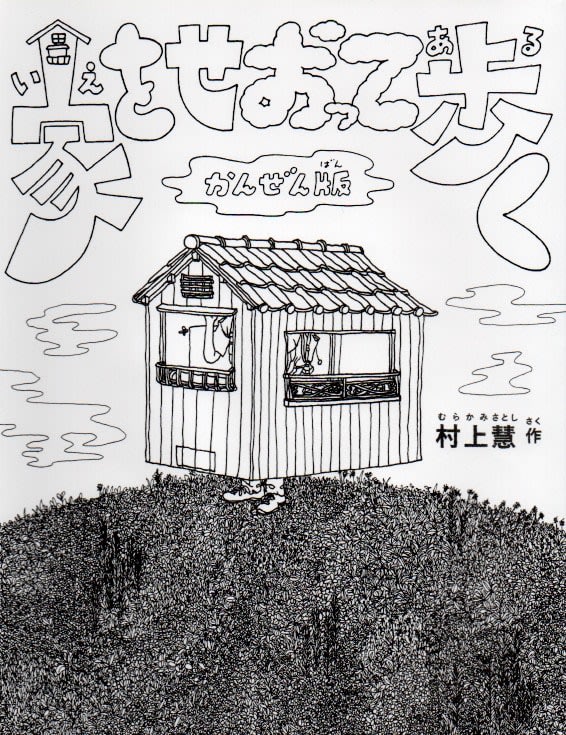 いえ　ある
家をせおって歩く
ばん
かんぜん版
むらかみさとし　さく
村上慧　作